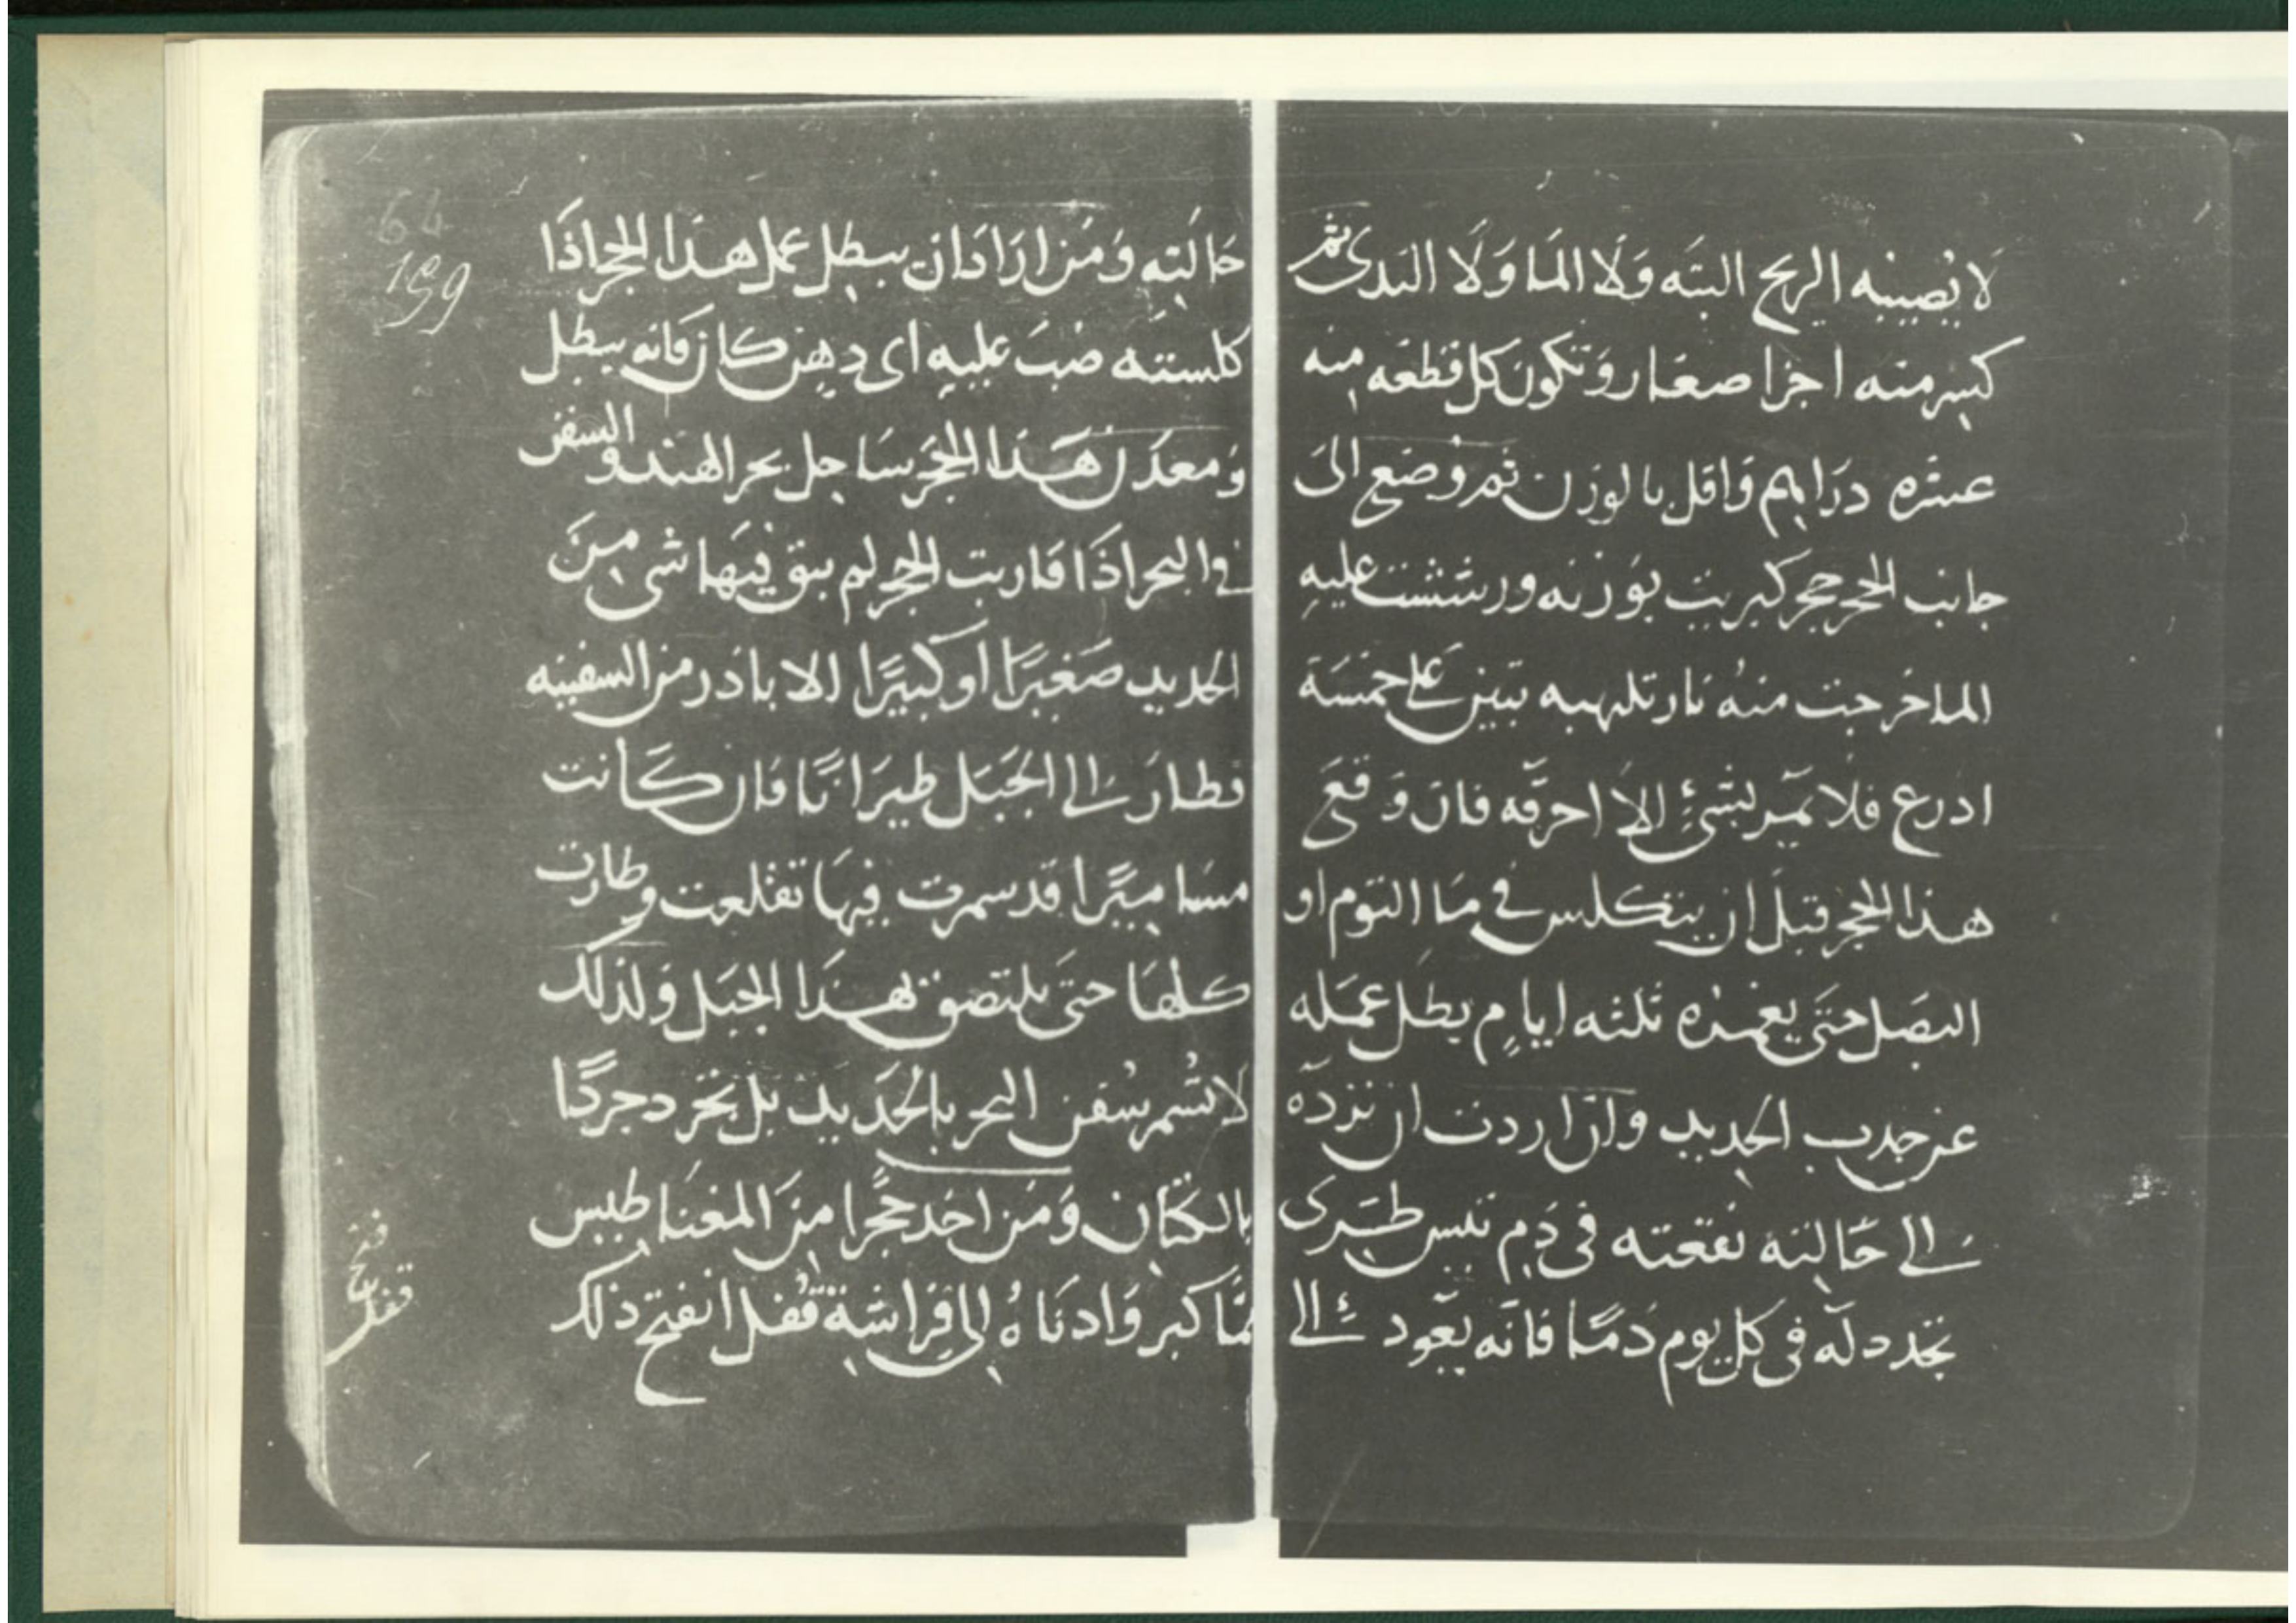 لا يصيبه الريح البته ولا الما ولا الندى ثم
كسر منه اجزا صغار وتكون كل قطعه منه
عشره دراهم واقل بالوزن ثم وضع الى
جانب الحجر حجر كبريت بوزنه ورششت عليه
الما خرجت منه نار تلهبه تبين على خمسة
اذرع فلا تمر بشئ الا احرقه فان وقع
هذا الحجر قبل ان يتكلس في ما الثوم او
البصل حتى يغمره ثلثه ايام بطل عمله
عن جدب الحديد وان اردت ان تزده
الى حالته نقعته فى دم تيس طرى
تجدد له فى كل يوم دما فانه يعود الى
64
159
حالته ومن اراد ان يبطل عمل هذا الحجر اذا
كلسته صب عليه اى دهن كان فانه يبطل
ومعدن هذا الحجر ساحل بحر الهند والسفن
في البحر اذا قاربت الحجر لم يبق فيها شى من
الحديد صغيرا او كبيرا الا باذر من السفينه
فطار الى الجبل طيرانا فان كانت
مساميرا قد سمرت فيها تقلعت وطارت
كلها حتى يلتصق بهذا الجبل ولذلك
لا تسمر سفن البحر بالحديد بل تخرد جردا
بالكتان ومن اخد حجرا من المغناطيس
مما كبر وادناه الى فراشة قفل انفتح ذلك
فتح
قفل